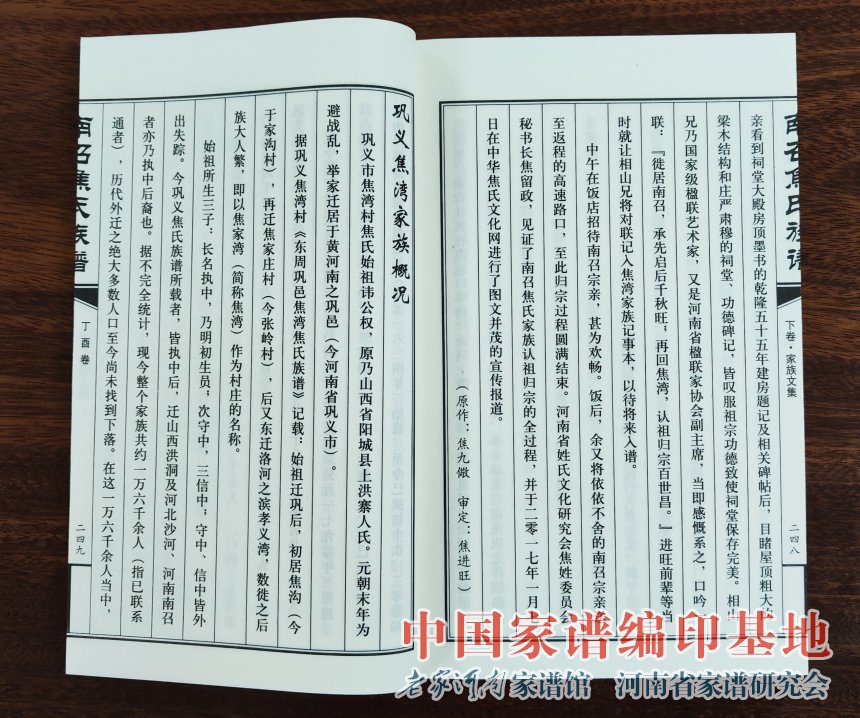 南召焦氏族谱
下卷·家族文集
二四八
亲看到祠堂大殿房顶墨书的乾隆五十五年建房题记及相关碑帖后，目睹屋顶粗大
梁木结构和庄严肃穆的祠堂、功德碑记，皆叹服祖宗功德致使祠堂保存完美。相山
兄乃国家级楹联艺术家，又是河南省楹联家协会副主席，当即感慨系之，口吟
联：『徙居南召，承先启后千秋旺；再回焦湾，认祖归宗百世昌。』进旺前辈等当
时就让相山兄将对联记入焦湾家族记事本，以待将来入谱。
中午在饭店招待南召宗亲，甚为欢畅。饭后，余又将依依不舍的南召宗亲送
至返程的高速路口，至此归宗过程圆满结束。河南省姓氏文化研究会焦姓委员会
秘书长焦留政，见证了南召焦氏家族认祖归宗的全过程，并于二零一七年一月
日在中华焦氏文化网进行了图文并茂的宣传报道。
（原作：焦九儆 审定：焦进旺）
巩义焦湾家族概况
巩义市焦湾村焦氏始祖讳公权，原乃山西省阳城县上洪寨人氏。元朝末年为
避战乱，举家迁居于黄河南之巩邑（今河南省巩义市）。
据巩义焦湾村《东周巩邑焦湾焦氏族谱》记载：始祖迁巩后，初居焦沟（今
于家沟村），再迁焦家庄村（今张岭村），后又东迁洛河之滨孝义湾，数徙之后
族大人繁，即以焦家湾（简称焦湾）作为村庄的名称。
始祖所生三子：长名执中，乃明初生员；次守中，三信中；守中、信中皆外
出失踪。今巩义焦氏族谱所载者，皆执中后，迁山西洪洞及河北沙河、河南南召
者亦乃执中后裔也。据不完全统计，现今整个家族共约一万六千余人（指已联系
通者），历代外迁之绝大多数人口至今尚未找到下落。在这一万六千余人当中，
南召焦氏族谱
丁酉卷
二四九
中国家谱编印基地
老家河南家谱馆 河南省家谱研究会